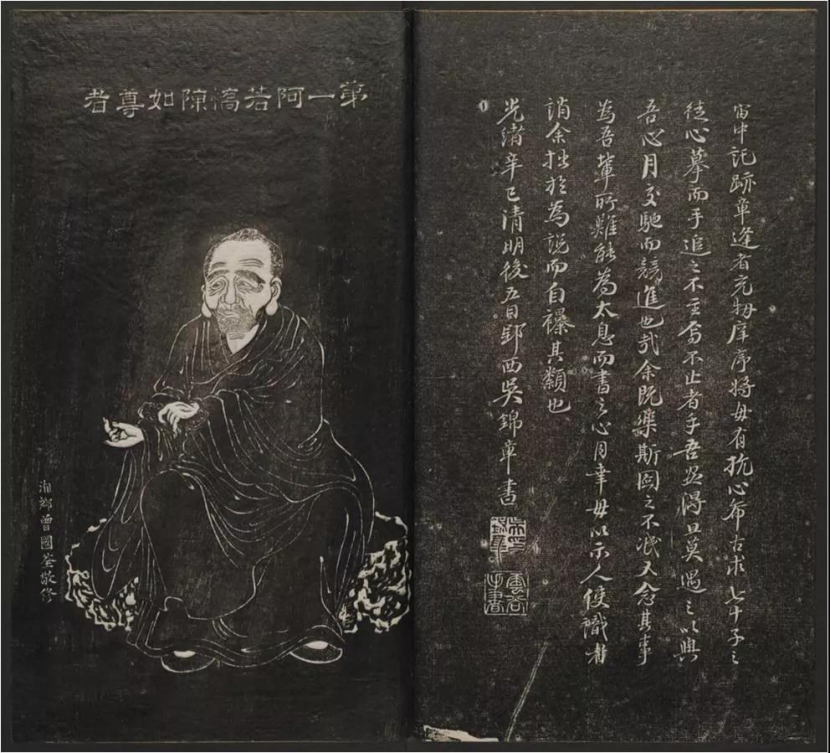 宙中託跡章逢者充牣庠序將毋有抗心希古求七十子之
徒心摹而手追之不至焉不止者乎吾惡得旦莫遇之以與
吾心月交馳而競進也哉余既樂斯圖之不泯又念其事
為吾輩所難能為太息而書之心月幸毋以示人使識者
誚余拙於為說而自襮其纇也
光緒辛巳清明後五日鄖西吳錦章書
第一阿若憍陳如尊者
湘鄉曾國荃敬修